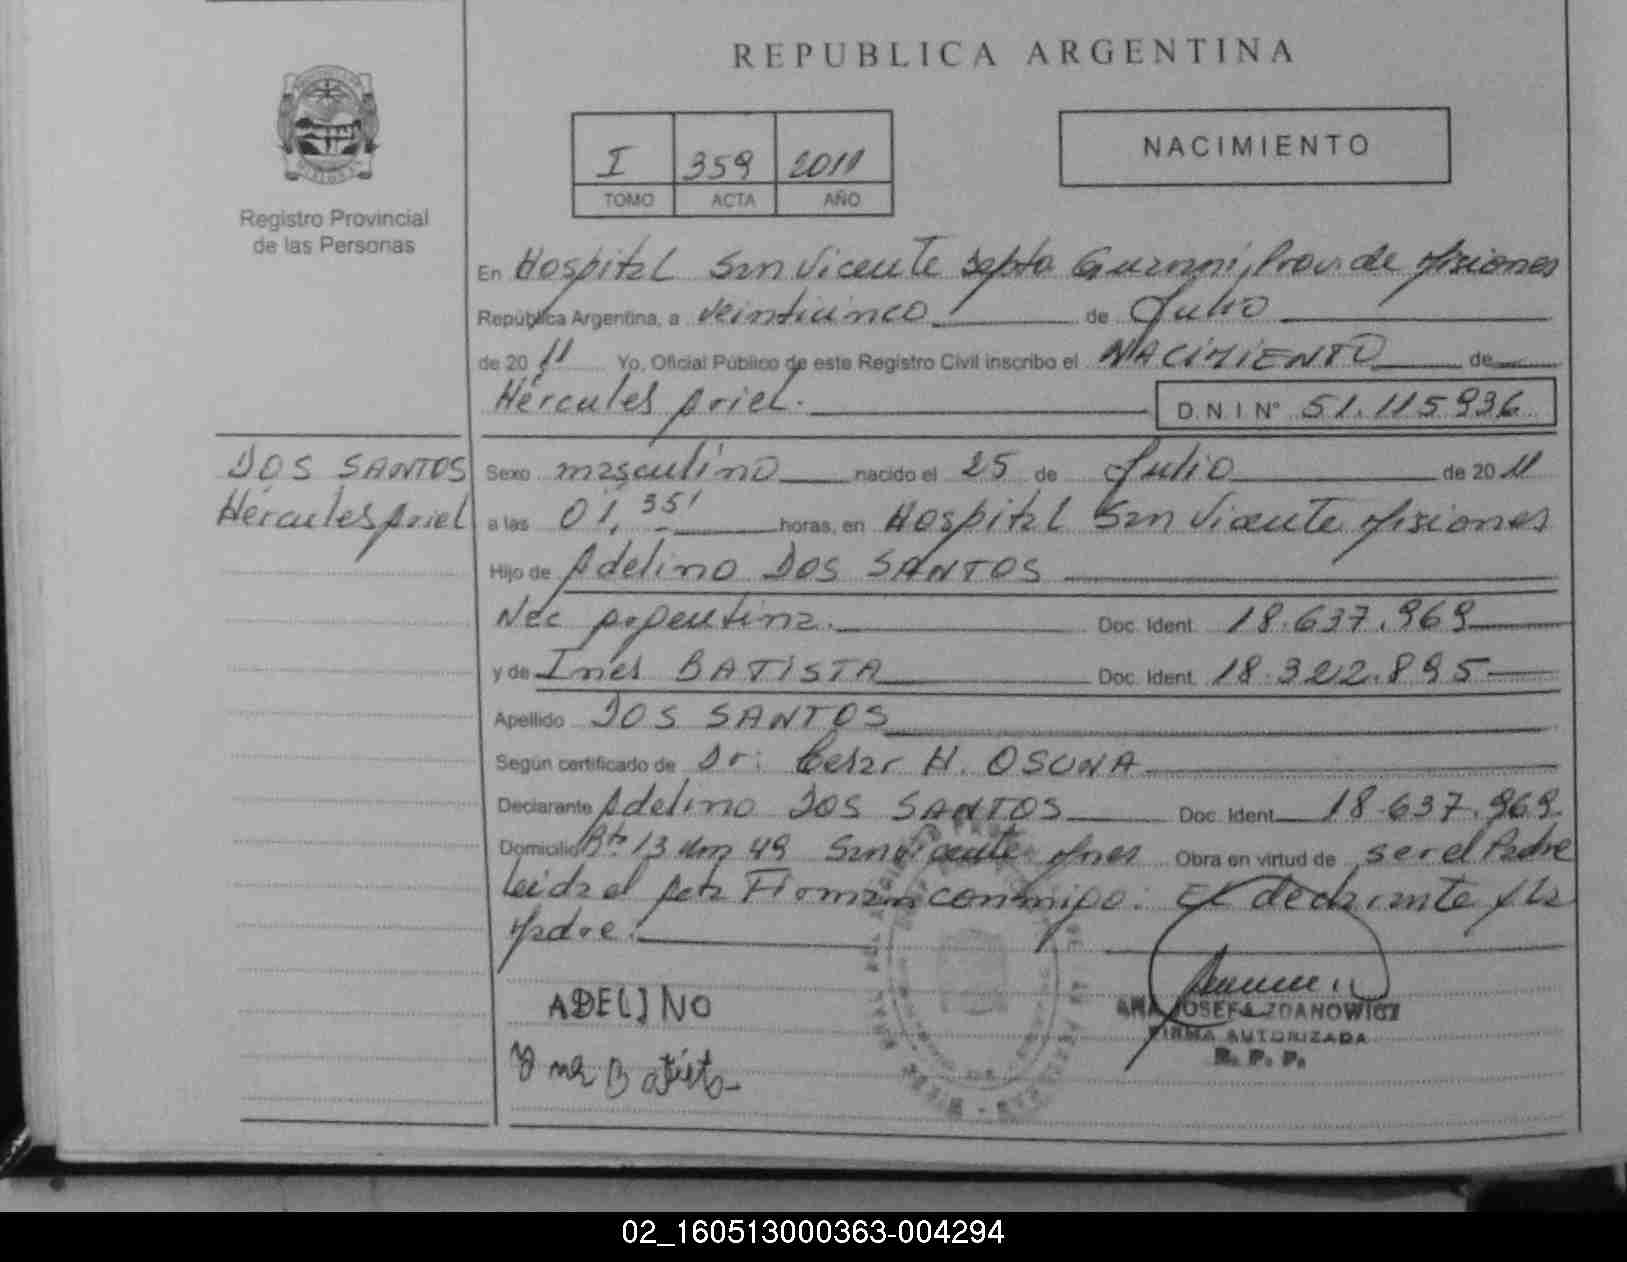 REPUBLICA ARGENTINA
I 359 2011
TOMO ACTA AÑO
NACIMIENTO
Registro Provincial
de las Personas
En Hospital San Vicente Depto Guarani, Prov. de Misiones
República Argentina, a veinticinco de Julio
de 20 11 Yo, Oficial Público de este Registro Civil inscribo el NACIMIENTO de
Hércules Ariel. D.N.I Nº 51.115.936
DOS SANTOS
Hércules Ariel
Sexo masculino nacido el 25 de Julio de 20 11
a las 01,35' horas, en Hospital San Vicente Misiones
Hijo de Adelino DOS SANTOS
Nac Argentina. Doc. Ident. 18.637.969
y de Inés BATISTA Doc. Ident. 18.322.895
Apellido DOS SANTOS
Según certificado de Dr: Cesar H. OSUNA
Declarante Adelino DOS SANTOS Doc. Ident. 18.637.969
Domicilio Bº 13 Km 49 San Vicente Mnes Obra en virtud de ser el Padre
Leida el Acta Firman conmigo: El declarante y la
Madre.
ADELINO
Batista
ANA JOSEFA ZDANOWICZ
FIRMA AUTORIZADA
R. P. P.
02_160513000363-004294